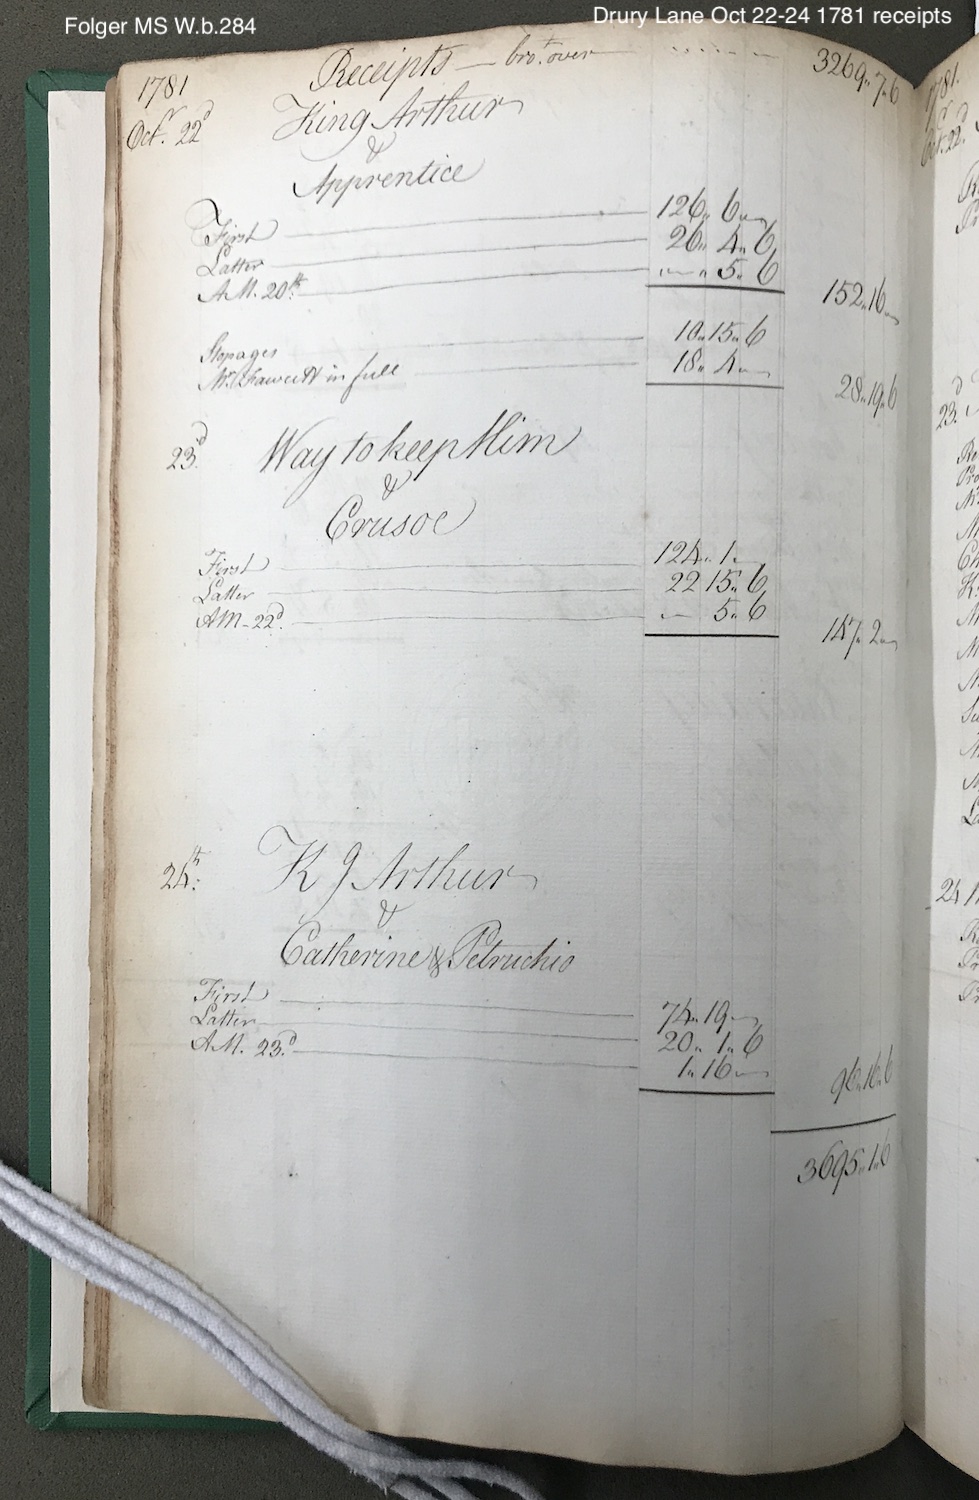 Folger MS W.b.284
Drury Lane Oct 22-24 1781 receipts
1781 Receipts — bro.t over 3269,, 7,, 6
Oct.r 22d King Arthur
&
Apprentice
First 126,, 6,, —
Latter 26,, 4,, 6
A.M. 20th — ,, 5,, 6
152,, 16,, —
Stopages 10,, 15,, 6
Mr. Fawcett in full 18,, 4,, —
28,, 19,, 6
23d Way to keep Him
&
Crusoe
First 124,, 1,, —
Latter 22 15,, 6
AM - 22d — 5,, 6
147,, 2,, —
24th K g Arthur
&
Catherine & Petruchio
First 74,, 19,, —
Latter 20,, 1,, 6
A.M. 23d 1,, 16,, —
96,, 16,, 6
3695,, 1,, 6
1781
Oct. 22
23
24